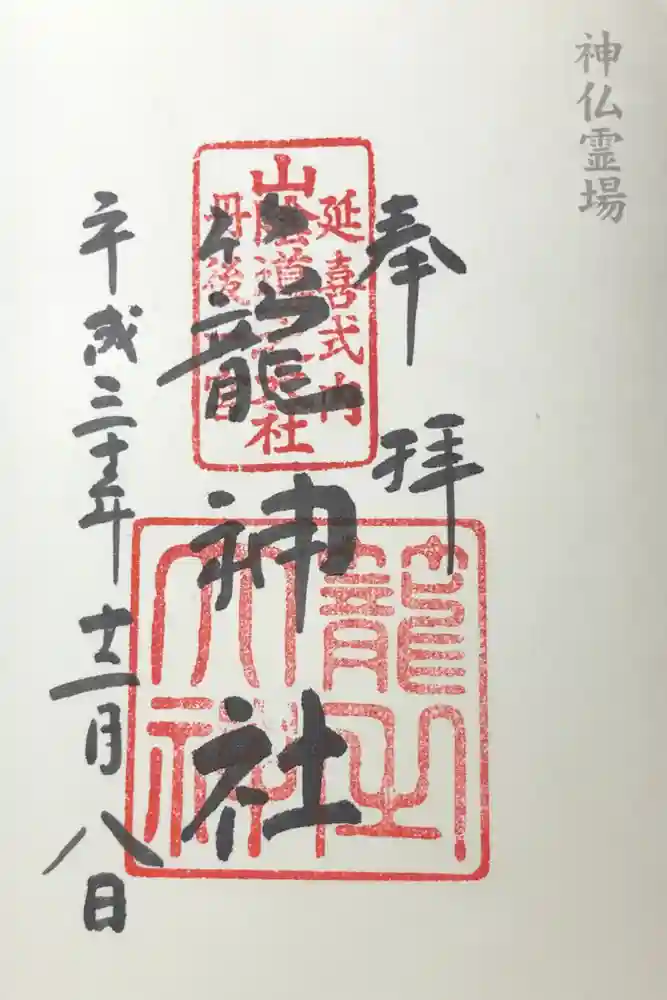 神仏霊場
奉拝
延喜式内
山陰道
社
丹後一宮
籠神社
平成三十年十二月八日